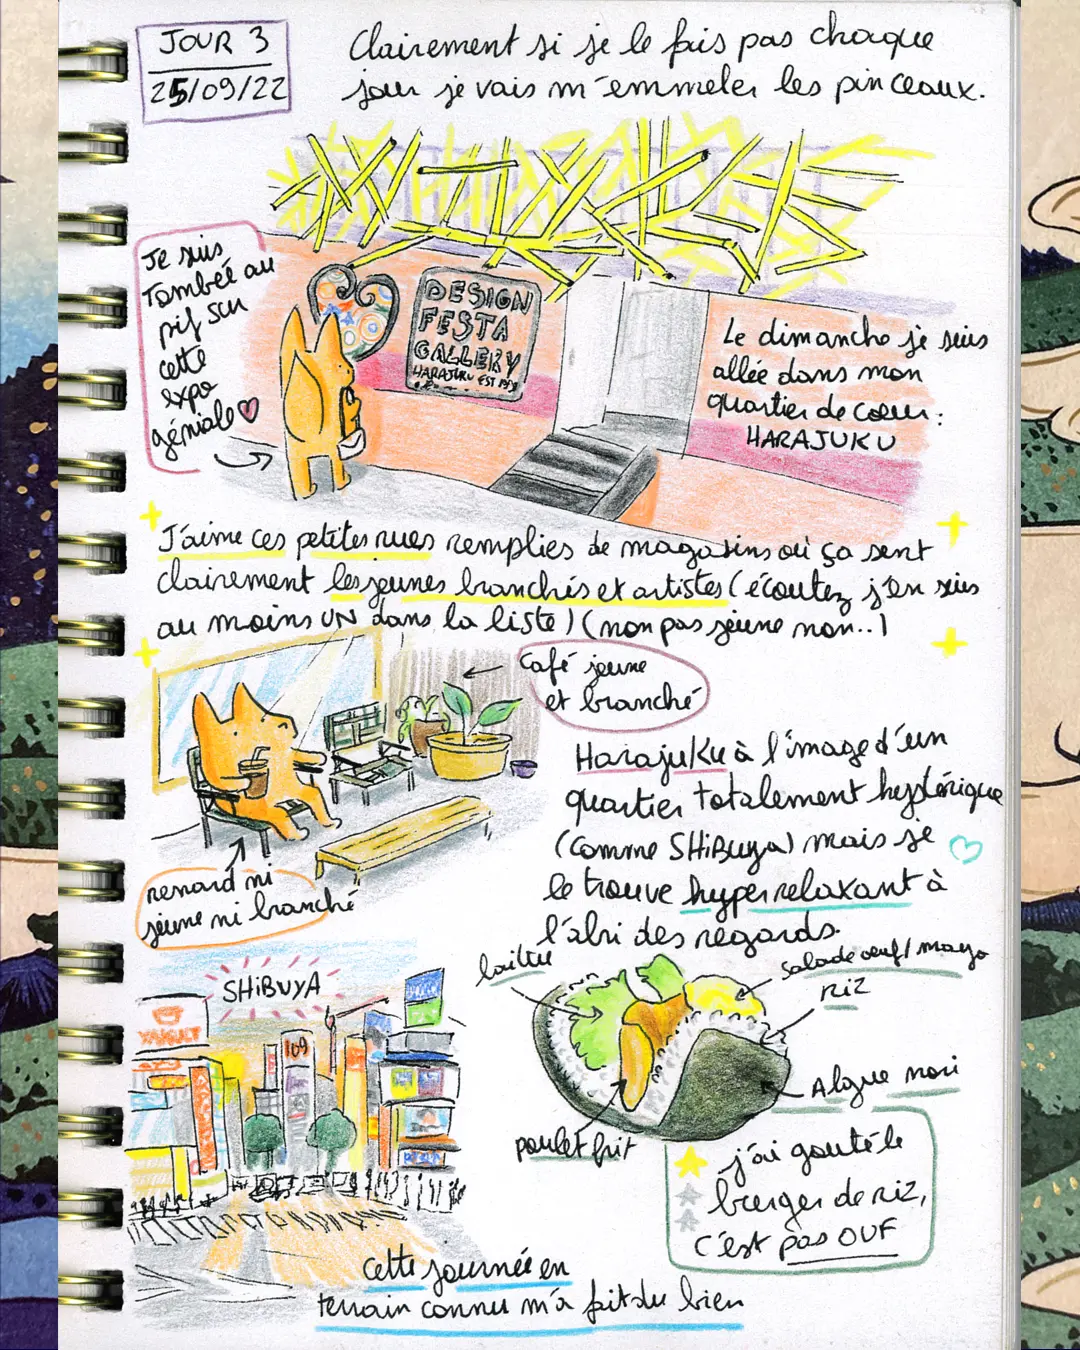 JOUR 3
25/09/22
Clairement si je le fais pas chaque
jour je vais m'emmeler les pinceaux.
Je suis
Tombée au
pif sur
cette
expo
géniale ♡
DESIGN
FESTA
GALLERY
HARAJUKU EST 1998
Le dimanche je suis
allée dans mon
quartier de coeur :
HARAJUKU
J'aime ces petites rues remplies de magasins où ça sent
clairement les jeunes branchés et artistes (écoutez j'en suis
au moins UN dans la liste) (non pas jeune non..)
Café jeune
et branché
Harajuku à l'image d'un
quartier totalement hystérique
(comme SHiBuya) mais je
le trouve hyper relaxant à
l'abri des regards.
renard ni
jeune ni branché
SHiBUYA
YAKULT
109
laitue
salade oeuf/mayo
riz
Algue nori
poulet frit
j'ai gouté le
burger de riz,
c'est pas OUF
cette journée en
terrain connu m'a fait du bien